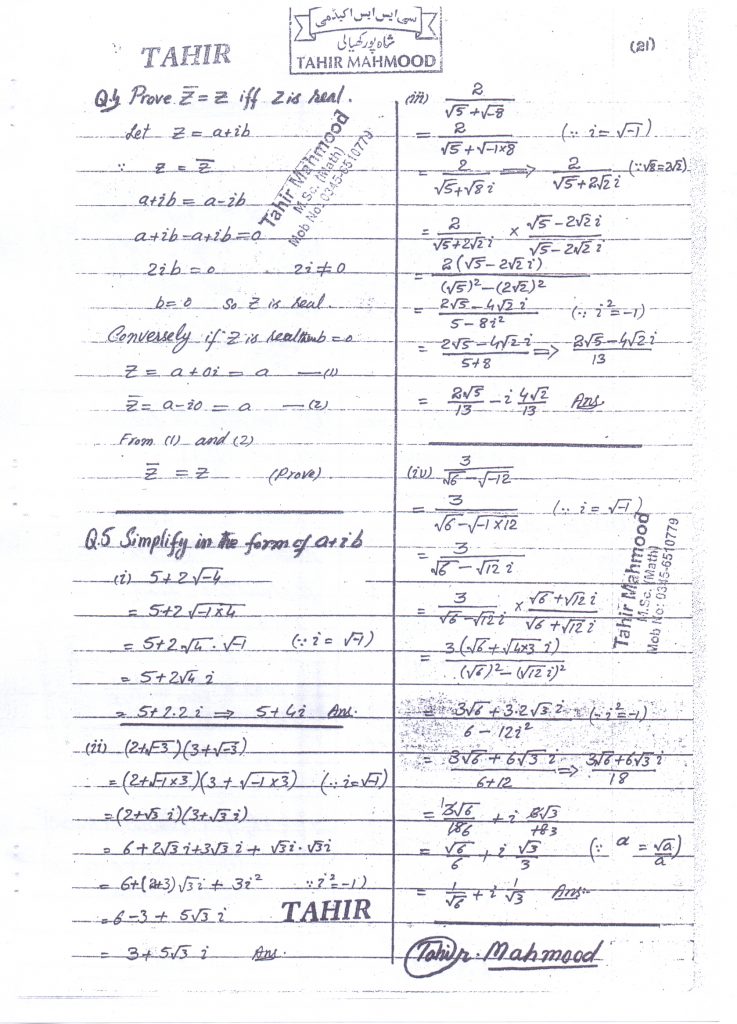 TAHIR
سی ایس ایس اکیڈمی
شاہ پور کھیالی
TAHIR MAHMOOD
(21)
Q.4 Prove z̅ = z iff z is real.
Let z = a+ib
∵ z = z̅
a+ib = a-ib
a+ib-a+ib=0
2ib=0 2i≠0
b=0 So z is real.
Conversely if z is real then b=0
z = a+0i = a —(1)
z̅ = a-i0 = a —(2)
From (1) and (2)
z̅ = z (Prove)
Tahir Mahmood
M.Sc. (Math)
Mob No: 0345-6510779
Q.5 Simplify in the form of a+ib
(i) 5+2√-4
= 5+2√-1×4
= 5+2√4 . √-1 (∵ i = √-1)
= 5+2√4 i
= 5+2.2i ⇒ 5+4i Ans.
(ii) (2+√-3)(3+√-3)
=(2+√-1×3)(3+√-1×3) (∵ i=√-1)
=(2+√3 i)(3+√3 i)
= 6+2√3i+3√3i + √3i.√3i
= 6+(2+3)√3i + 3i² ∵ i²=-1)
= 6-3+5√3 i
= 3+5√3 i Ans.
TAHIR
(iii) 2/(√5+√-8)
= 2/(√5+√-1×8) (∵ i=√-1)
= 2/(√5+√8 i) ⇒ 2/(√5+2√2 i) (∵√8=2√2)
= 2/(√5+2√2 i) × (√5-2√2 i)/(√5-2√2 i)
= 2(√5-2√2 i)/((√5)²-(2√2)²
= (2√5-4√2 i)/(5-8i²) (∵ i²=-1)
= (2√5-4√2 i)/(5+8) ⇒ (2√5-4√2 i)/13
= 2√5/13 - i 4√2/13 Ans.
(iv) 3/(√6-√-12)
= 3/(√6-√-1×12) (∵ i=√-1)
= 3/(√6-√12 i)
= 3/(√6-√12 i) × (√6+√12 i)/(√6+√12 i)
= 3(√6+√4×3 i)/((√6)²-(√12 i)²)
= (3√6+3.2√3 i)/(6-12i²) (∵ i²=-1)
= (3√6+6√3 i)/(6+12) ⇒ (3√6+6√3 i)/18
= 3√6/186 + i 6√3/183
= √6/6 + i √3/3 (∵ a = √a/a)
= 1/√6 + i 1/√3 Ans.
Tahir Mahmood
M.Sc. (Math)
Mob No: 0345-6510779
Tahir. Mahmood